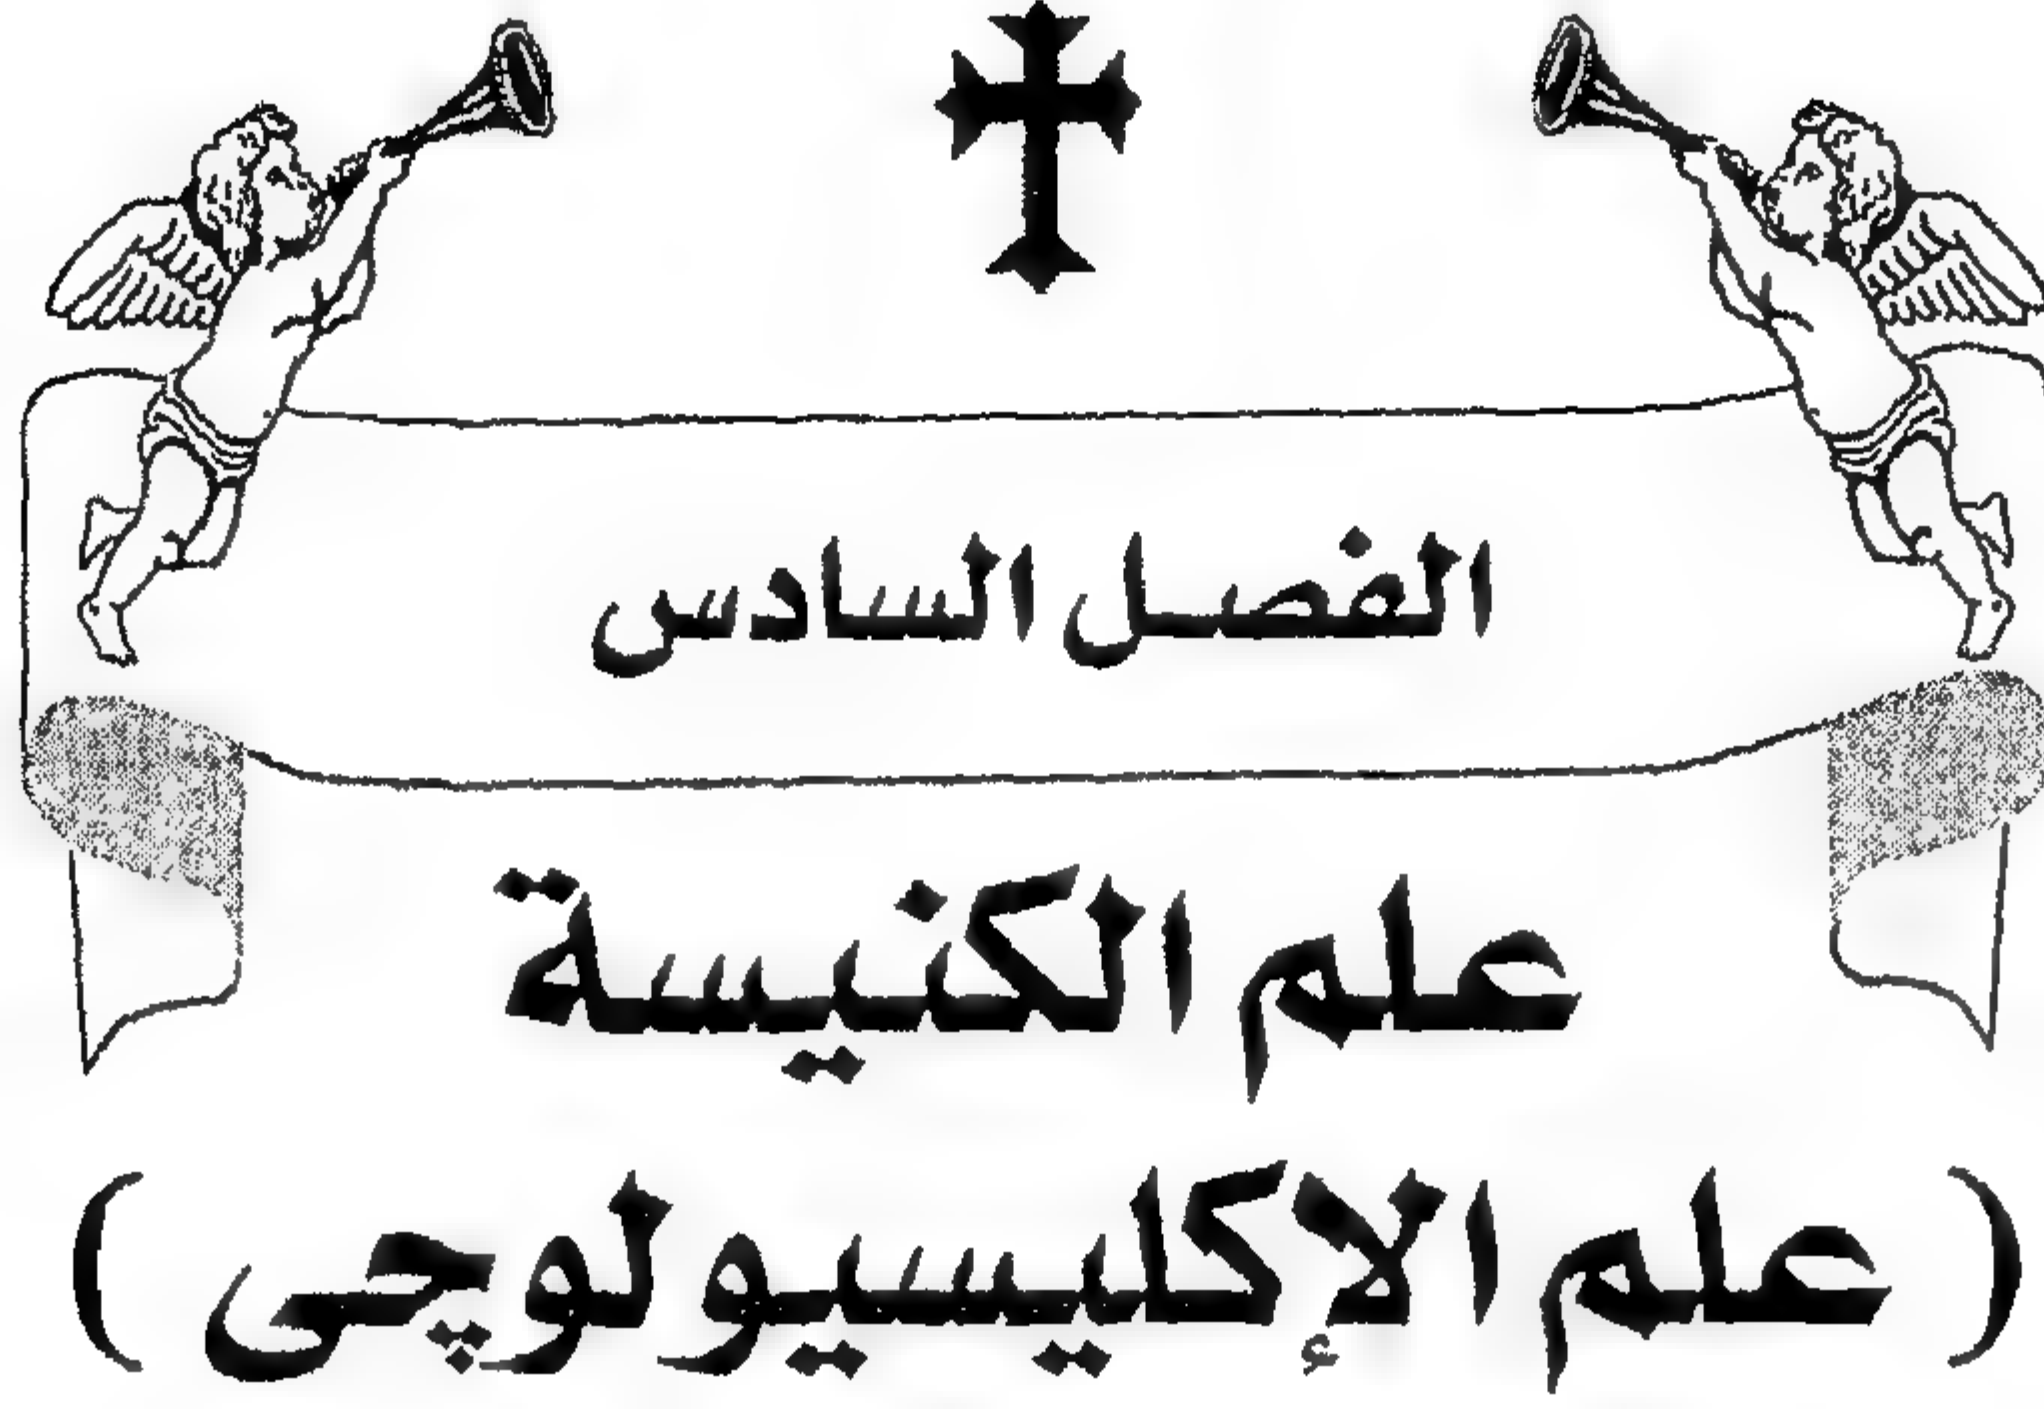 الفصل السادس
علم الكنيسة
( علم الإكليسيولوچى )